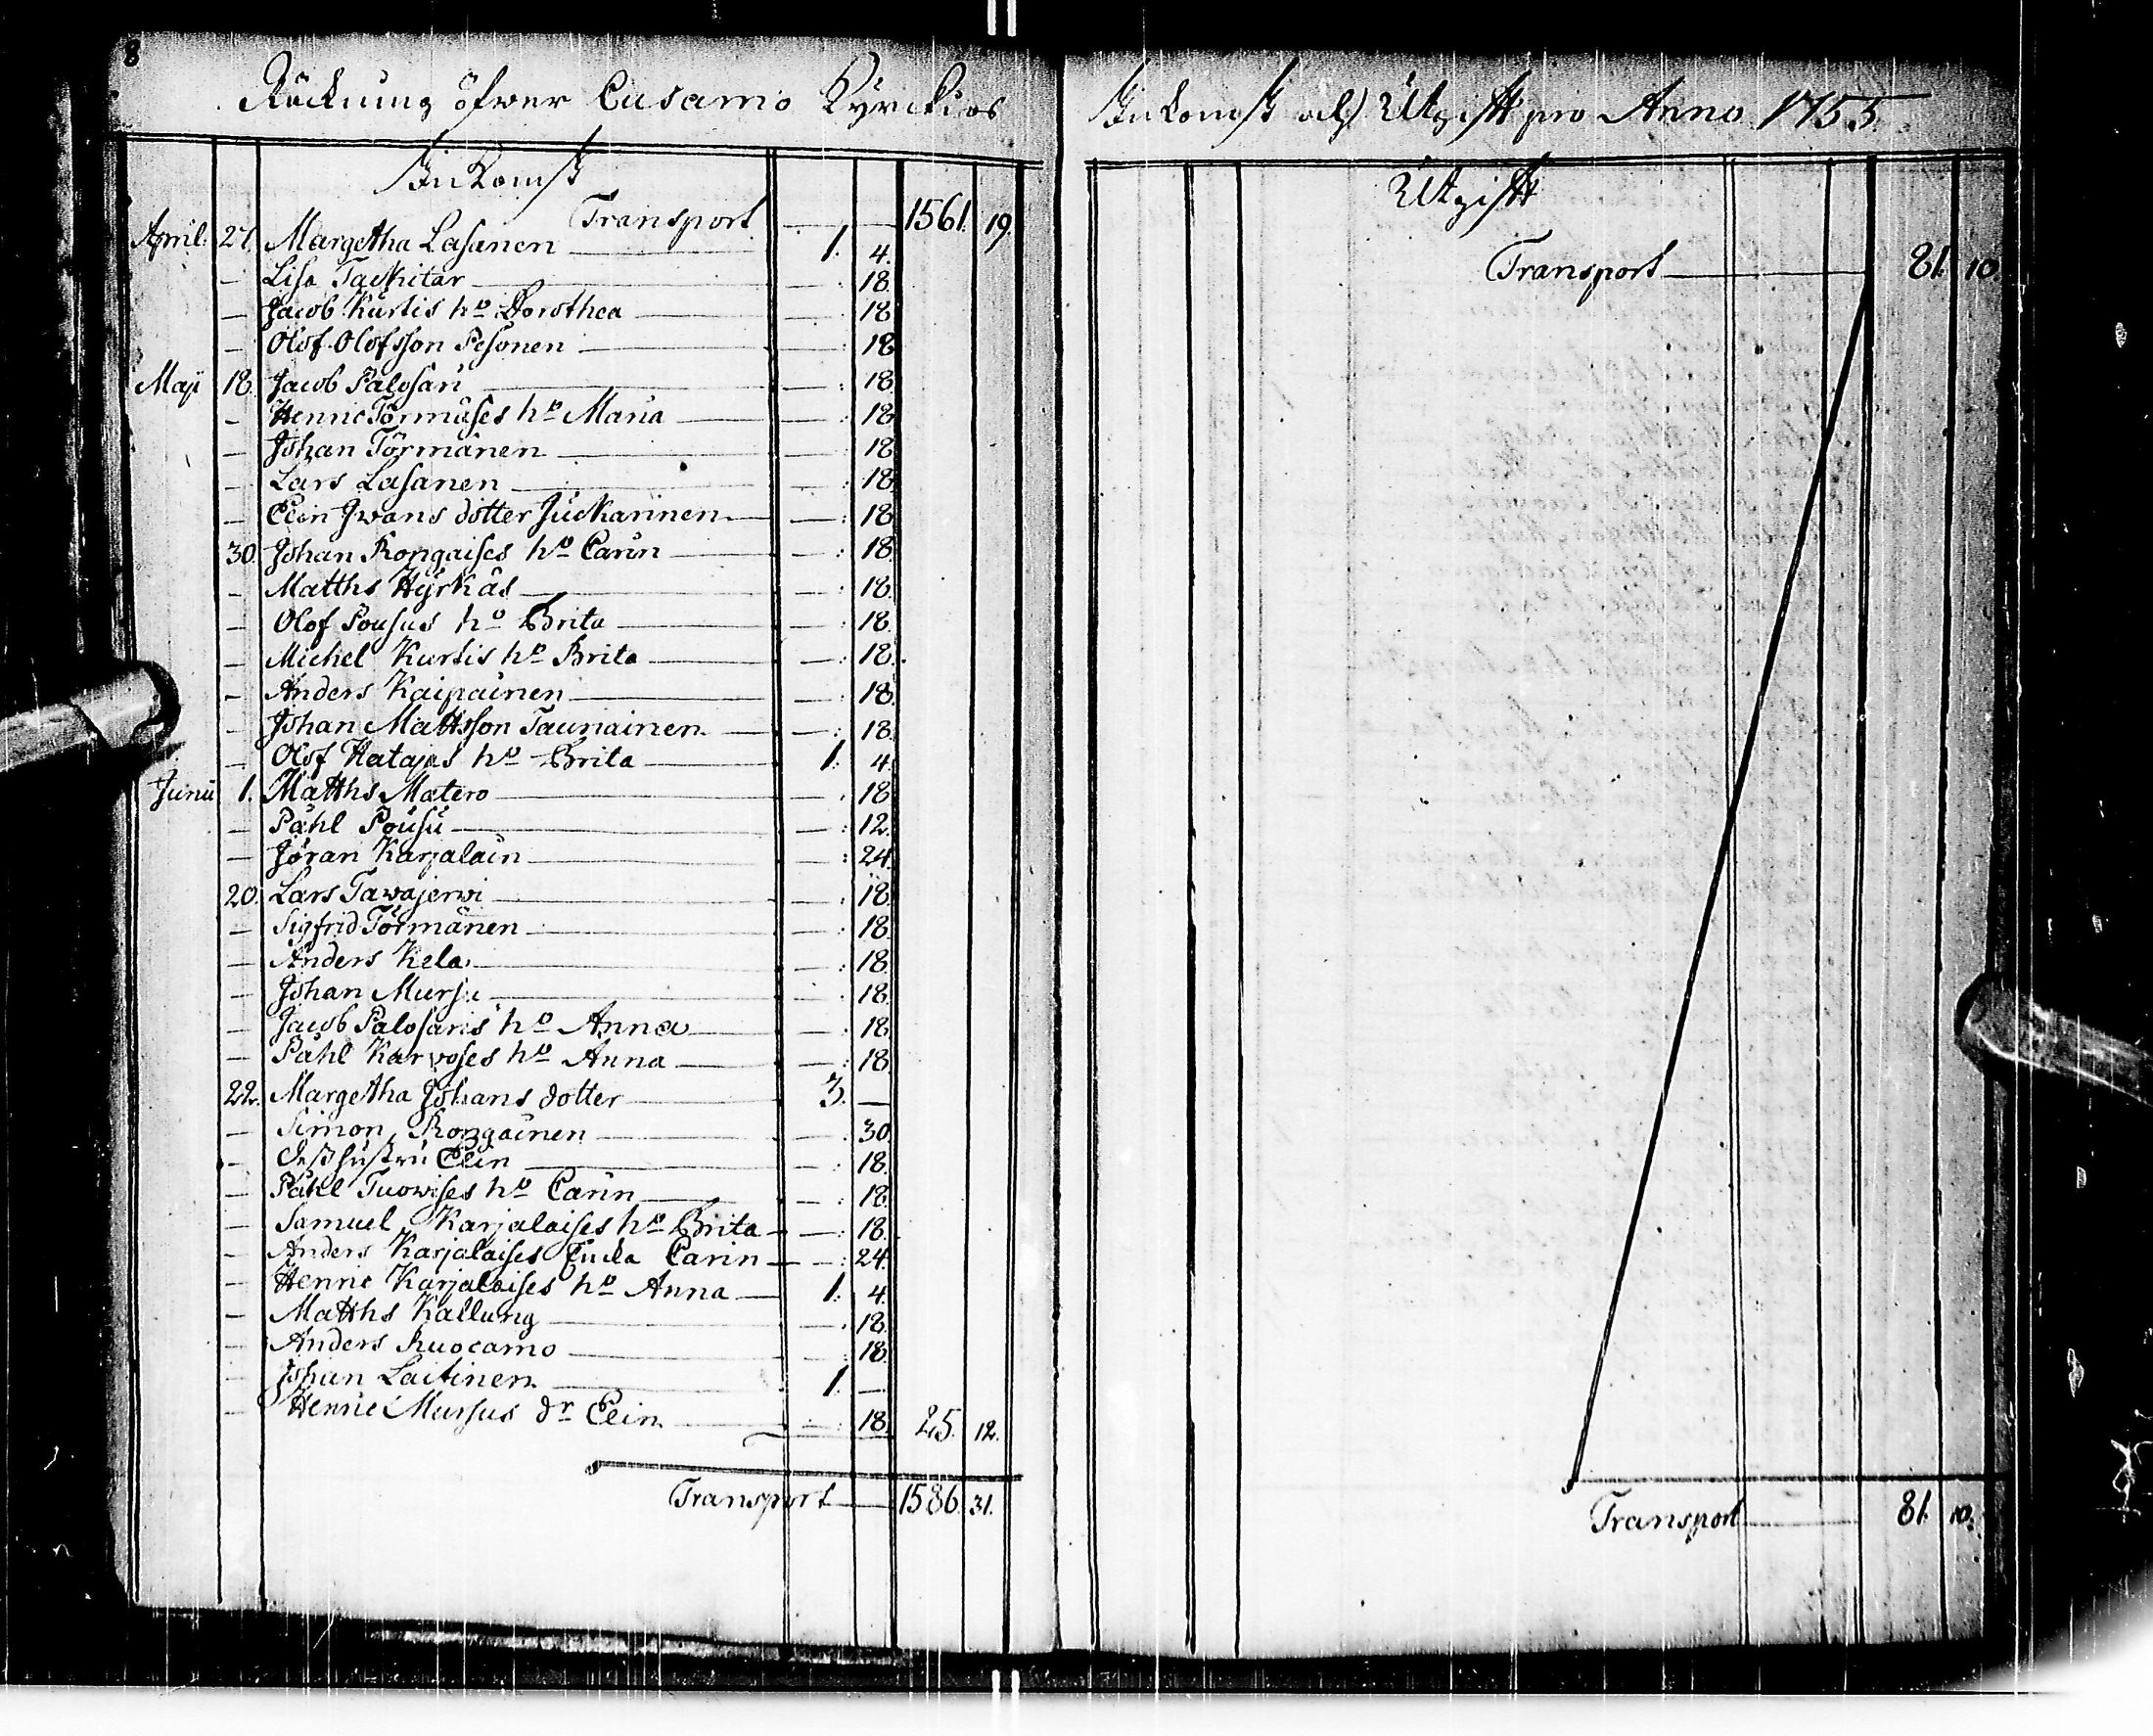 8
Räckning öfwer Cusamo Kyrckios
Inkomst
Transport — 1561. 19.
April. 27. Margetha Lasanen — 1. 4.
— Lisa Tackitar — : 18.
— Jacob Kurtis ho Dorothea — : 18
— Olof Olofsson Pesonen — : 18
Maji 18. Jacob Palosari — : 18.
— Henric Törmäses ho Maria — : 18.
— Johan Törmänen — : 18.
— Lars Lasanen — : 18.
— Elin Iwans dotter Juckarinen — : 18
30. Johan Rongaises ho Carin — : 18.
— Matths Hyrkäs — : 18.
— Olof Pousus ho Brita — : 18.
— Michel Kurtis ho Brita — : 18.
— Anders Kaipainen — : 18.
— Johan Mattsson Tauriainen — : 18.
— Olof Hatajas ho Brita — 1. 4.
Junii 1. Matths Matero — : 18.
— Påhl Pousu — : 12.
— Jöran Karjalain — : 24.
20. Lars Tawajerwi — : 18.
— Sigfrid Törmänen — : 18.
— Anders Kela — : 18.
— Johan Mursu — : 18.
— Jacob Palosaris ho Anna — : 18.
— Påhl Karwoses ho Anna — : 18.
22. Margetha Johans dotter — 3. —
— Simon Rongainen — : 30.
— Dess hustru Elin — : 18.
— Påhl Tuowises ho Carin — : 18.
— Samuel Karjalaises ho Brita — : 18.
— Anders Karjalaises Carin — : 24.
— Henric Karjalaises ho Anna — 1. 4.
— Matths Kallung — : 18.
— Anders Ruocamo — : 18.
— Johan Laitinen — 1. —
— Henric Mursus dr Elin — : 18. 25. 12.
Transport — 1586. 31.
Inkomst och Utgift pro Anno 1755.
Utgift
Transport — 81. 10.
Transport — 81. 10.